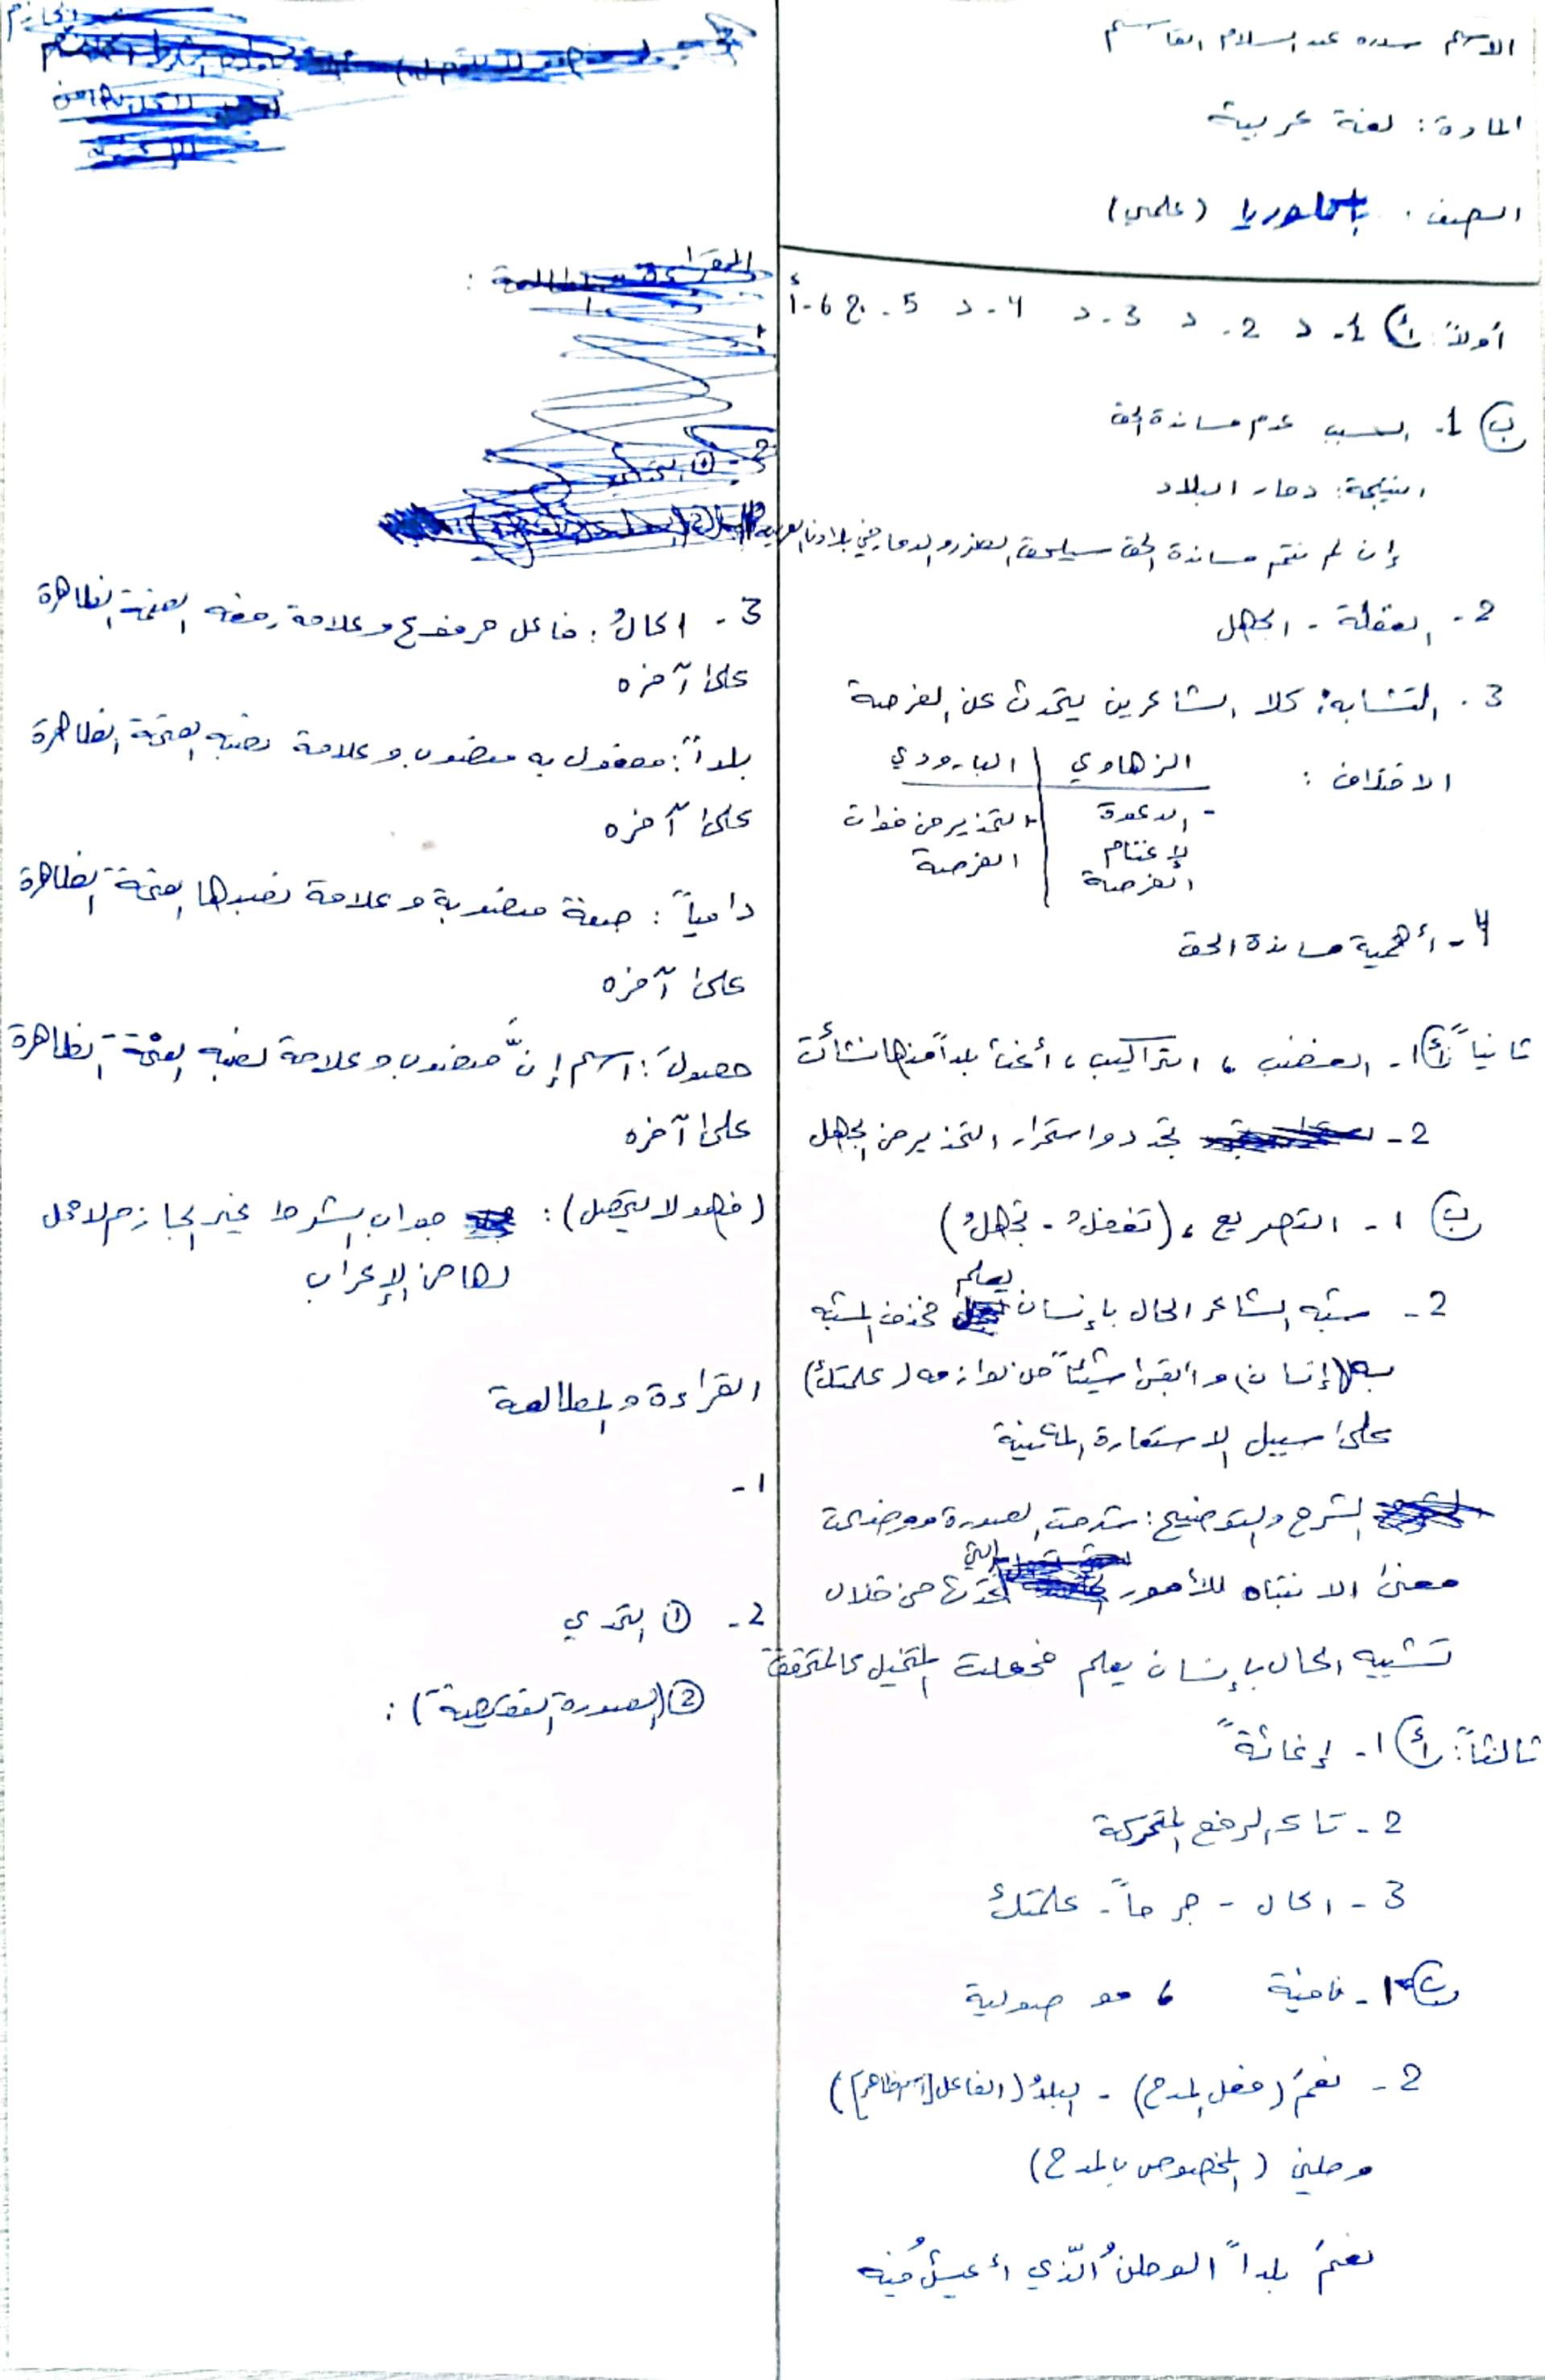 الاسم ساره عبد السلام القاسم
المادة : لغة عربية
الصف . بكالوريا (علمي)
أولاً: أ) 1- د 2- د 3- د 4- د 5- ج 6- أ
ب) 1- السبب عدم مساندة الحق
النتيجة : دمار البلاد
إن لم تتم مساندة الحق سيلحق الضرر والدمار في بلادنا العربية
2- الغفلة - الجهل
3- التشابه: كلا الشاعرين يتحدث عن الفرصة
الاختلاف : الزهاوي | البارودي
- الدعوة لإغتنام الفرصة | التحذير من فوات الفرصة
4- أهمية مساندة الحق
ثانياً أ) 1- الغضب ، التراكيب ، أغث بلداً منها نشأت
2- تجدد واستمرار التحذير من الجهل
ب) 1- التصريع ، (تغفلُ - تجهلُ)
2- شبه الشاعر الحال بإنسان يعلم فحذف المشبه
به (إنسان) وأبقى شيئاً من لوازمه (علمتك)
على سبيل الاستعارة المكنية
الشرح والتوضيح : شرحت الصورة ووضحت
معنى الانتباه للأمور التي من خلال
تشبيه الحال بإنسان يعلم فجعلت المتخيل كالمتحقق
ثالثاً: أ) 1- إغاثةً
2- تاء الرفع المتحركة
3- الحال - جرحاً - علمتك
ب) 1- نافية ، موصولية
2- نعمَ (فعل المدح) - البلدُ (الفاعل [اسم ظاهر])
وطني (المخصوص بالمدح)
نعمَ بلداً الوطنُ الّذي أعيشُ فيه
3- الحالُ : فاعل مرفوع وعلامة رفعه الضمة الظاهرة
على آخره
بلداً : مفعول به منصوب وعلامة نصبه الفتحة الظاهرة
على آخره
دامياً : صفة منصوبة وعلامة نصبها الفتحة الظاهرة
على آخره
اسم إنَّ منصوب وعلامة نصبه الفتحة الظاهرة
على آخره
(فهو لا يتمهل) : جواب الشرط غير الجازم لا محل
لها من الإعراب
القراءة والمطالعة
1-
2- ① التحدي
② (الصورة النقيضية) :